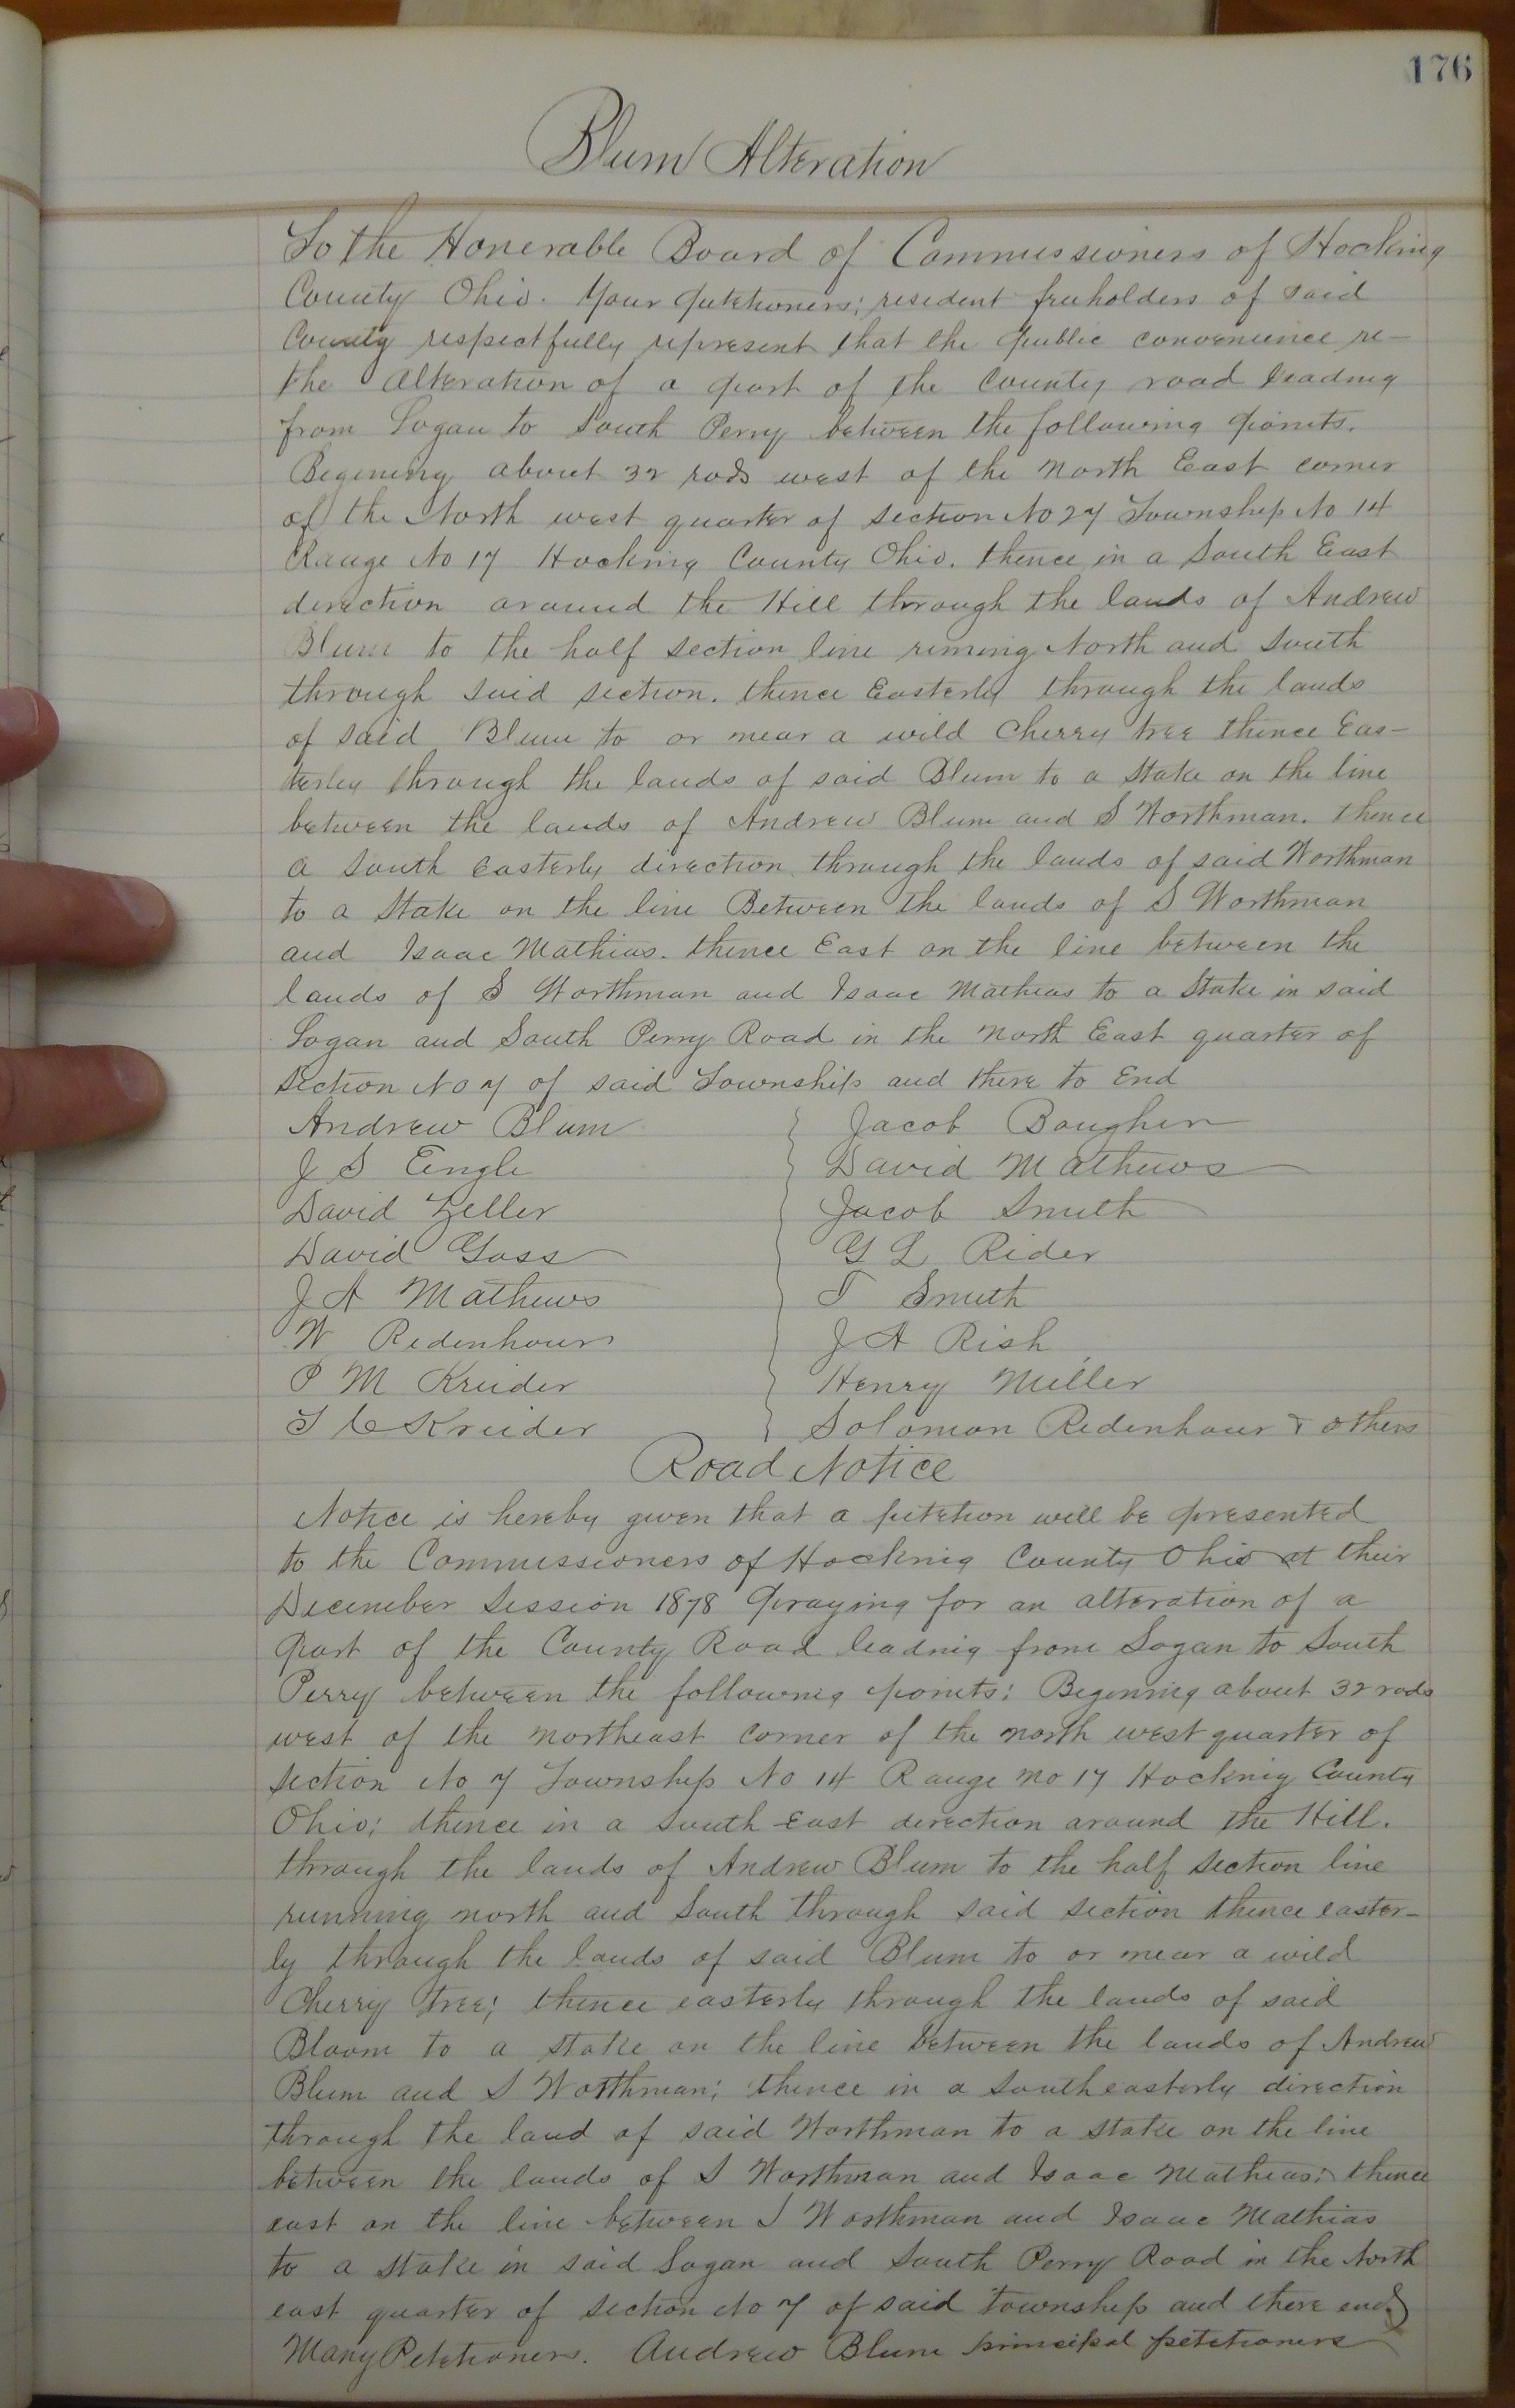 176
Blum Alteration
To the Honerable Board of Commissioners of Hocking
County Ohio. Your petetioners; resident freeholders of said
County respectfully represent that the public convenience re-
the Alteration of a part of the County road leading
from Logan to South Perry between the following points.
Begining about 32 rods west of the North East corner
of the North west quarter of section No 27 Township No 14
Range No 17 Hocking County Ohio. thence in a South East
direction around the Hill through the lands of Andrew
Blum to the half section line runing North and South
through said section. thence Easterly through the lands
of said Blum to or near a wild Cherry tree thence Eas-
terley through the lands of said Blum to a Stake on the line
between the lands of Andrew Blum and S Worthman. thence
a South easterly direction through the lands of said Worthman
to a Stake on the line Between the lands of S Worthman
and Isaac Mathias. thence East on the line between the
lands of S Worthman and Isaac Mathias to a Stake in said
Logan and South Perry Road in the North East quarter of
Section No 7 of said Township and there to End
Andrew Blum } Jacob Baugher
J S Eingle } David Mathews
David Zeller } Jacob Smith
David Goss } G L Rider
J A Mathews } T Smith
W Ridenhour } J A Rish
P M Kreider } Henry Miller
T C Kreider } Solomon Ridenhour & others
Road Notice
Notice is hereby given that a petetion will be presented
to the Commissioners of Hocking County Ohio at their
December Session 1878 Praying for an alteration of a
part of the County Road leading from Logan to South
Perry between the following points: Begening about 32 rods
west of the northeast corner of the north west quarter of
section No 7 Township No 14 Range no 17 Hocking County
Ohio; thence in a South East direction around the Hill.
through the lands of Andrew Blum to the half section line
running north and South through said section thence easter-
ly through the lands of said Blum to or near a wild
Cherry tree; thence easterly through the lands of said
Bloom to a stake on the line between the lands of Andrew
Blum and S Worthman; thence in a Southeasterly direction
through the land of said Worthman to a stake on the line
between the lands of S Worthman and Isaac Mathias; thence
east on the line between S Worthman and Isaac Mathias
to a stake in said Logan and South Perry Road in the North
east quarter of section No 7 of said township and there end
Many Petetioners. Andrew Blum principal petetioners